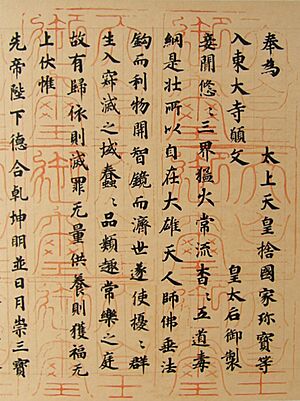 奉為 太上天皇捨國家珎寶等
入東大寺願文 皇太后御製
妾聞悠々三界猛火常流杳々五道毒
網是壯所以自在大雄天人師佛垂法
鈎而利物開智鏡而濟世遂使擾々群
生入寂滅之域蠢々品類趣常樂之庭
故有歸依則滅罪无量供養則獲福无
上伏惟
先帝陛下德合乾坤明並日月崇三寶